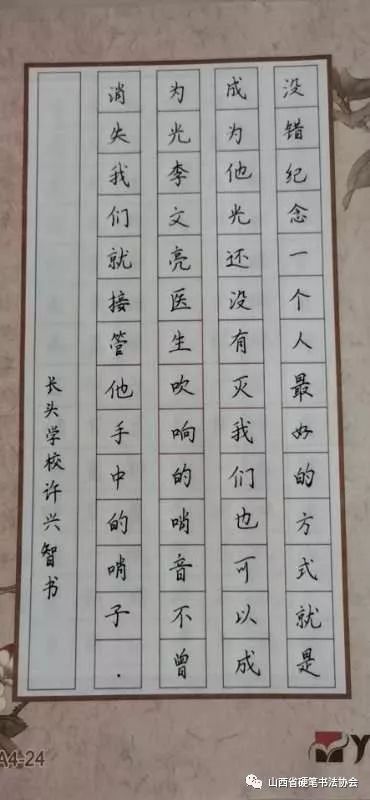 没错纪念一个人最好的方式就是
成为他光还没有灭我们也可以成
为光李文亮医生吹响的哨音不曾
消失我们就接管他手中的哨子.
长头学校许兴智书
A4-24
Y
山西省硬笔书法协会